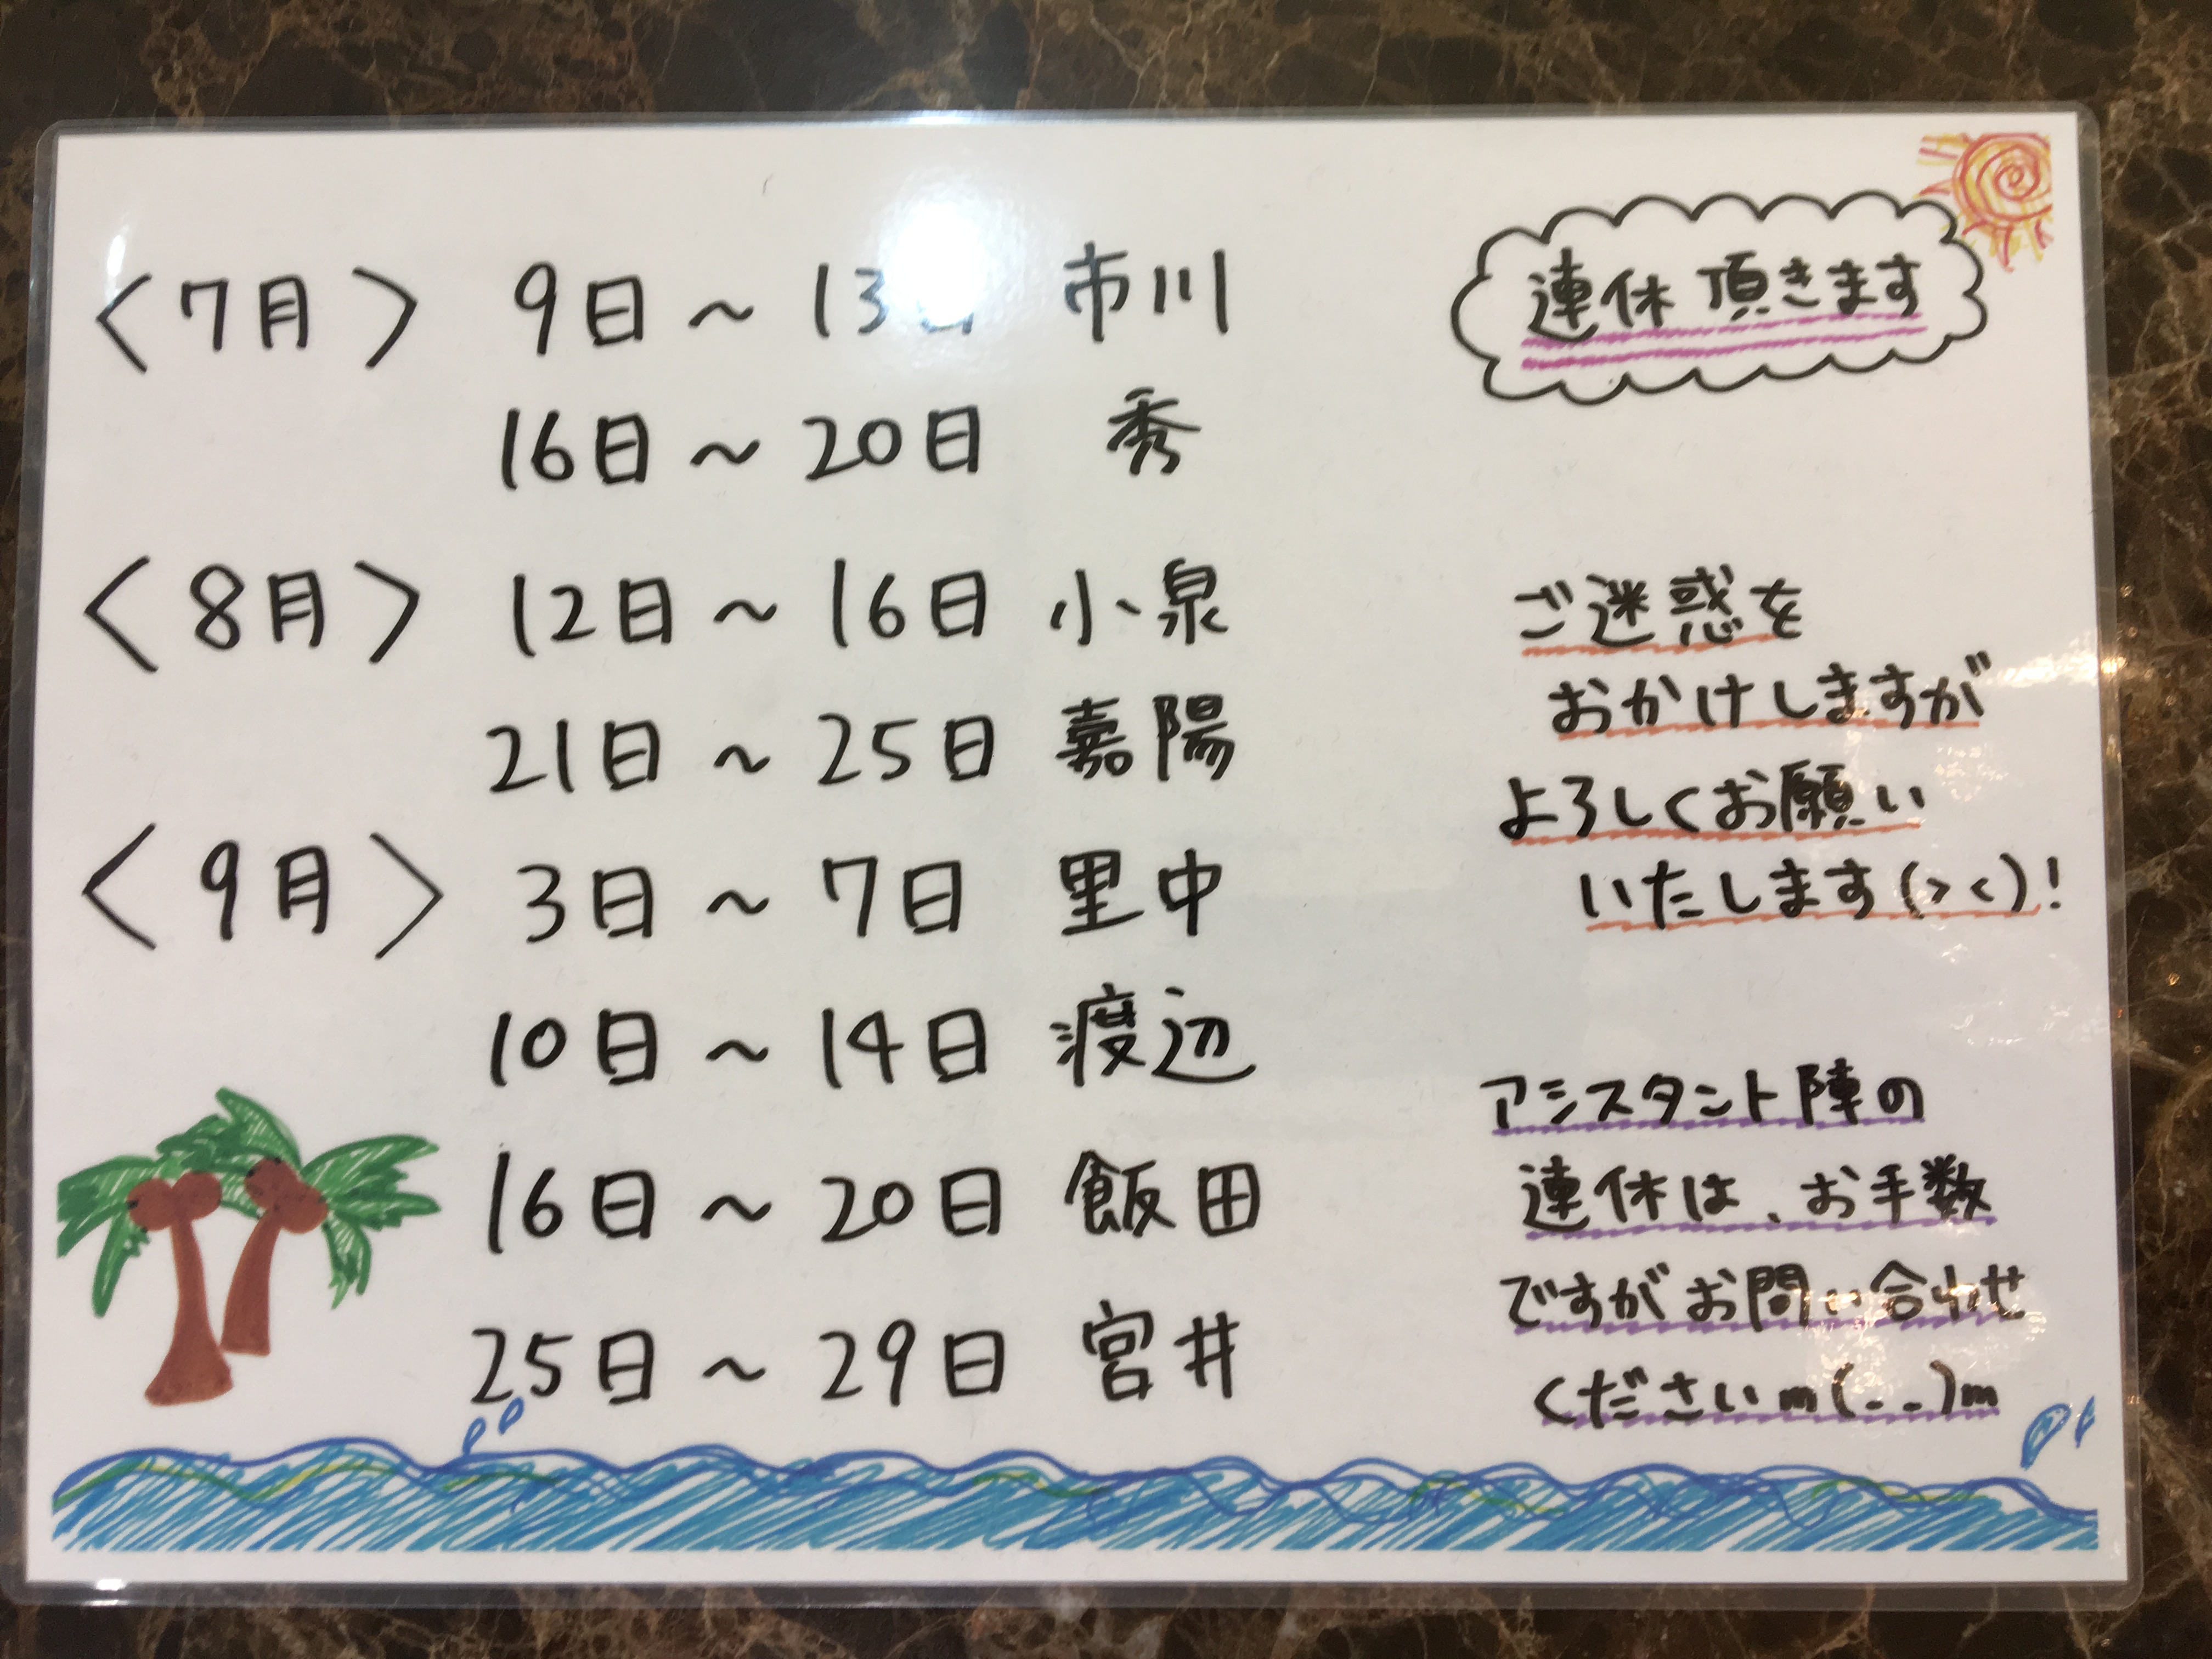 〈7月〉 9日～13日 市川
16日～20日 秀
〈8月〉 12日～16日 小泉
21日～25日 嘉陽
〈9月〉 3日～7日 里中
10日～14日 渡辺
16日～20日 飯田
25日～29日 宮井
連休頂きます
ご迷惑を
おかけしますが
よろしくお願い
いたします(><)!
アシスタント陣の
連休は、お手数
ですがお問い合わせ
くださいm(_ _)m